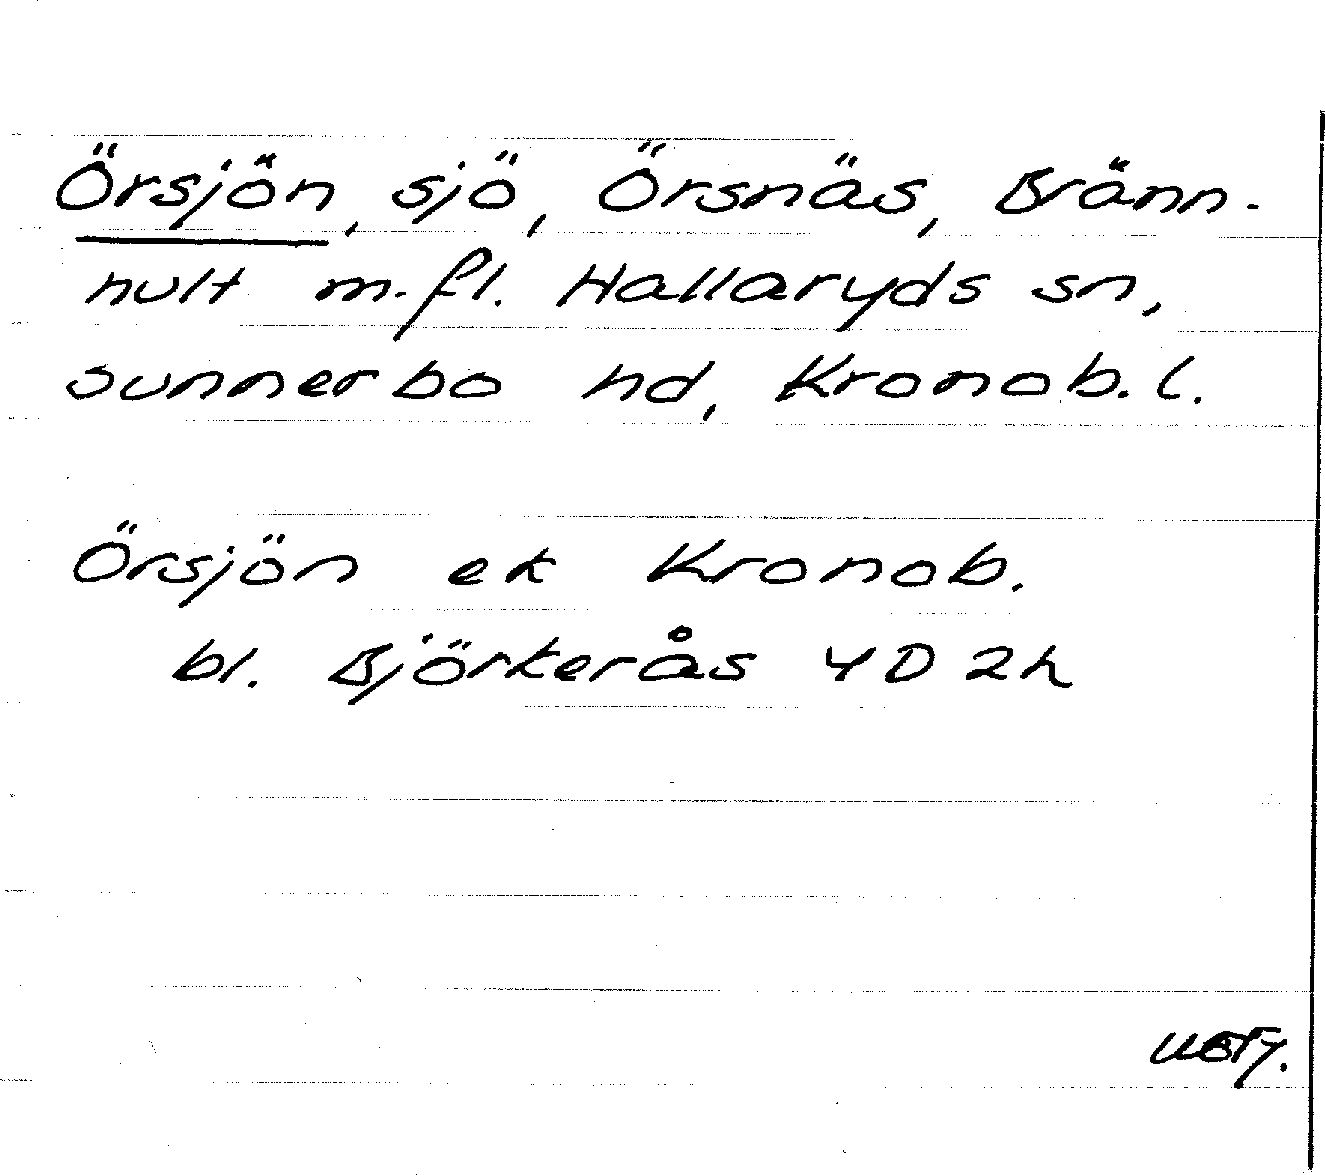 Örsjön, sjö, Örsnäs, Bränn-
hult m.fl. Hallaryds sn,
Sunnerbo hd, Kronob. l.
Örsjön ek Kronob.
bl. Björkerås 4D 2h